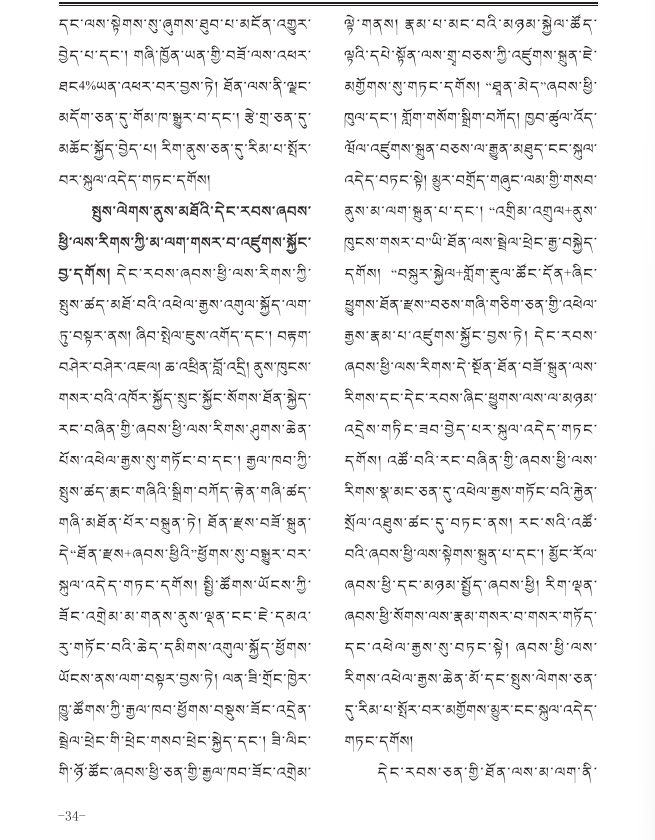 དང་ལས་སྟེགས་སུ་ཞུགས་ཐུབ་པ་མངོན་འགྱུར་
བྱེད་པ་དང་། གཞི་ཁྱོན་ཡན་གྱི་བཟོ་ལས་འཕར་
ཐང4%ཡན་འཕར་བར་བྱས་ཏེ། ཐོན་ལས་ནི་ལྗང་
མདོག་ཅན་དུ་གོམ་ཁ་སྒྱུར་བ་དང་། རྩེ་གྲ་ཅན་དུ་
མཆོང་སྐྱོད་བྱེད་པ། རིག་ནུས་ཅན་དུ་རིམ་པ་སྤོར་
བར་སྐུལ་འདེད་གཏང་དགོས།
སྤུས་ལེགས་ནུས་མཐོའི་དེང་རབས་ཞབས་
ཕྱི་ལས་རིགས་ཀྱི་མ་ལག་གསར་བ་འཛུགས་སྐྱོང་
བྱ་དགོས། དེང་རབས་ཞབས་ཕྱི་ལས་རིགས་ཀྱི་
སྤུས་ཚད་མཐོ་བའི་འཕེལ་རྒྱས་འགུལ་སྐྱོད་ལག་
ཏུ་བསྟར་ནས། ཞིབ་སྤེལ་ཇུས་འགོད་དང་། བརྟག་
བཤེར་བཤེར་འཇལ། ཆ་འཕྲིན་བློ་འདྲི། ནུས་ཁུངས་
གསར་བའི་འཁོར་སྐྱོད་སྲུང་སྐྱོང་སོགས་ཐོན་སྐྱེད་
རང་བཞིན་གྱི་ཞབས་ཕྱི་ལས་རིགས་ཤུགས་ཆེན་
པོས་འཕེལ་རྒྱས་སུ་གཏོང་བ་དང་། རྒྱལ་ཁབ་ཀྱི་
སྤུས་ཚད་རྨང་གཞིའི་སྒྲིག་བཀོད་རྟེན་གཞི་ཚད་
གཞི་མཐོན་པོར་བསྐྲུན་ཏེ། ཐོན་རྫས་བཟོ་སྐྲུན་
དེ“ཐོན་རྫས+ཞབས་ཕྱིའི”ཕྱོགས་སུ་བསྒྱུར་བར་
སྐུལ་འདེད་གཏང་དགོས། སྤྱི་ཚོགས་ཡོངས་ཀྱི་
ཟོང་འགྲེམ་མ་གནས་ནུས་ལྡན་ངང་ཇེ་དམའ་
རུ་གཏོང་བའི་ཆེད་དམིགས་འགུལ་སྐྱོད་ཕྱོགས་
ཡོངས་ནས་ལག་བསྟར་བྱས་ཏེ། ལན་ཟི་གྲོང་ཁྱེར་
ཁྱུ་ཚོགས་ཀྱི་རྒྱལ་ཁབ་ཕྱོགས་བསྡུས་ཟོང་འདྲེན་
སྦྲེལ་ཕྲེང་གི་ཕྲེང་གསབ་ཕྲེང་སྐྱེད་དང་། ཟི་ལིང་
གི་ཉོ་ཚོང་ཞབས་ཕྱི་ཅན་གྱི་རྒྱལ་ཁབ་ཟོང་འགྲེམ་
ལྟེ་གནས། རྣམ་པ་མང་བའི་མཉམ་སྐྱེལ་ཚོད་
ལྟའི་དཔེ་སྟོན་ལས་གྲྭ་བཅས་ཀྱི་འཛུགས་སྐྲུན་ཇེ་
མགྱོགས་སུ་གཏང་དགོས། “ཐྲན་མེད”ཞབས་ཕྱི་
ཁུལ་དང་། གློག་གསོག་སྒྲིག་བཀོད། ཁྱབ་ཚུལ་འོད་
ཝོལ་འཛུགས་སྐྲུན་བཅས་ལ་རྒྱུན་མཐུད་ངང་སྐུལ་
འདེད་བཏང་སྟེ། མྱུར་བགྲོད་གཞུང་ལམ་གྱི་གསབ་
ནུས་མ་ལག་སྐྲུན་པ་དང་། “འགྲིམ་འགྲུལ+ནུས་
ཁུངས་གསར་བ”ཡི་ཐོན་ལས་སྦྲེལ་ཕྲེང་རྒྱ་བསྐྱེད་
དགོས། “བསྐུར་སྐྱེལ+གློག་རྡུལ་ཚོང་དོན+ཞིང་
ཕྱུགས་ཐོན་རྫས”བཅས་གཞི་གཅིག་ཅན་གྱི་འཕེལ་
རྒྱས་རྣམ་པ་འཛུགས་སྐྱོང་བྱས་ཏེ། དེང་རབས་
ཞབས་ཕྱི་ལས་རིགས་དེ་སྔོན་ཐོན་བཟོ་སྐྲུན་ལས་
རིགས་དང་དེང་རབས་ཞིང་ཕྱུགས་ལས་ལ་མཉམ་
འདྲེས་གཏིང་ཟབ་བྱེད་པར་སྐུལ་འདེད་གཏང་
དགོས། འཚོ་བའི་རང་བཞིན་གྱི་ཞབས་ཕྱི་ལས་
རིགས་སྣ་མང་ཅན་དུ་འཕེལ་རྒྱས་གཏོང་བའི་རྐྱེན་
སྲོལ་འཐུས་ཚང་དུ་བཏང་ནས། རང་སའི་འཚོ་
བའི་ཞབས་ཕྱི་ལས་སྟེགས་སྐྲུན་པ་དང་། མྱོང་རོལ་
ཞབས་ཕྱི་དང་མཉམ་སྤྱོད་ཞབས་ཕྱི། རིག་ལྡན་
ཞབས་ཕྱི་སོགས་ལས་རྣམ་གསར་བ་གསར་གཏོད་
དང་འཕེལ་རྒྱས་སུ་བཏང་སྟེ། ཞབས་ཕྱི་ལས་
རིགས་འཕེལ་རྒྱས་ཆེན་མོ་དང་སྤུས་ལེགས་ཅན་
དུ་རིམ་པ་སྤོར་བར་མགྱོགས་མྱུར་ངང་སྐུལ་འདེད་
གཏང་དགོས།
དེང་རབས་ཅན་གྱི་ཐོན་ལས་མ་ལག་ནི་
-34-